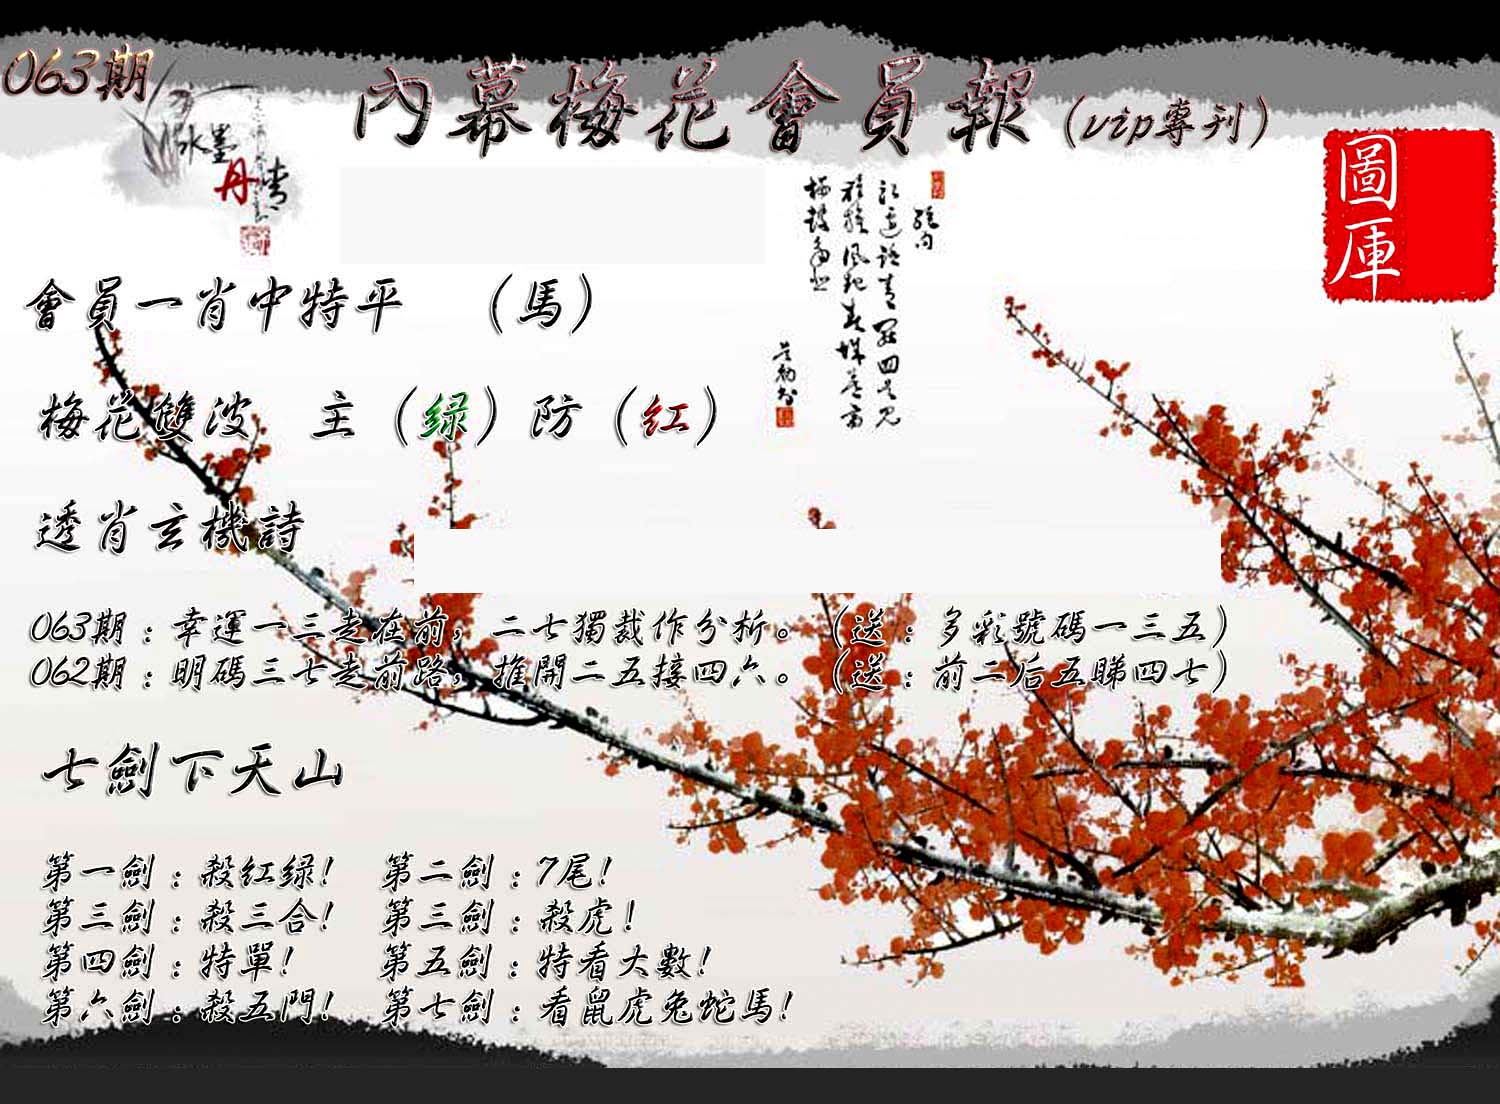 063期
內幕梅花會員報（vip專刊）
水墨
丹青
圖
庫
會員一肖中特平 （馬）
梅花雙波 主（绿）防（红）
透肖玄機詩
063期：幸運一三走在前，二七獨裁作分析。（送：多彩號碼一三五）
062期：明碼三七走前路，推開二五接四六。（送：前二后五睇四七）
七劍下天山
第一劍：殺红绿! 第二劍：7尾!
第三劍：殺三合! 第三劍：殺虎!
第四劍：特單! 第五劍：特看大數!
第六劍：殺五門! 第七劍：看鼠虎兔蛇馬!